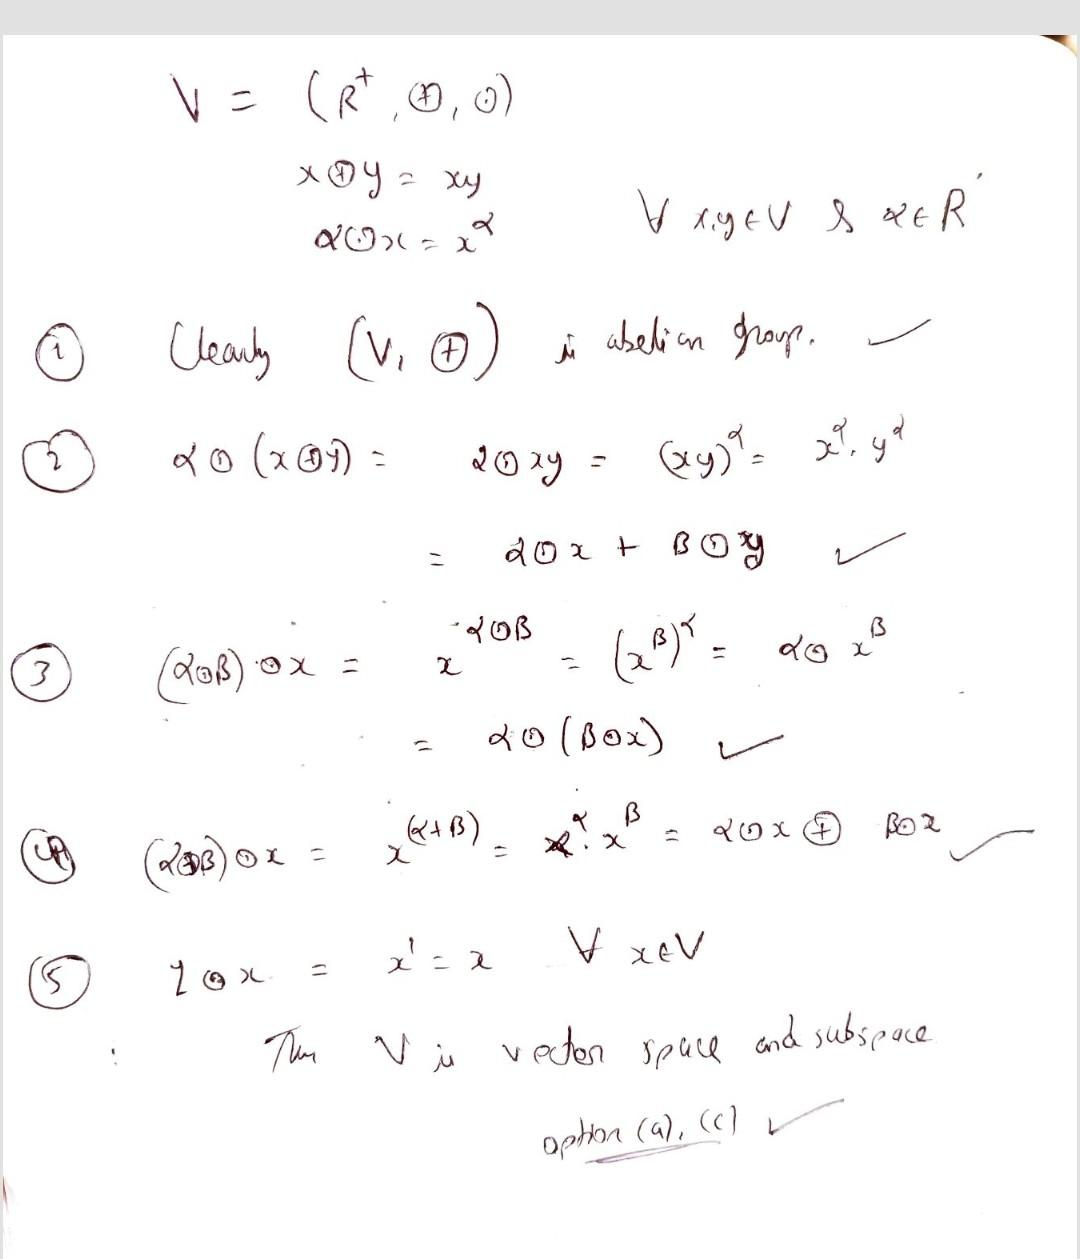 V = (R⁺, ⊕, ⊙)
x⊕y = xy
α⊙x = x^α ∀ x,y∈V & α∈R
① Clearly (V, ⊕) is abelian group. ✓
② α⊙(x⊕y) = α⊙xy = (xy)^α = x^α. y^α
= α⊙x + β⊙y ✓
③ (α⊙β)⊙x = x^α⊙β = (x^β)^α = α⊙ x^β
= α⊙(β⊙x) ✓
④ (α⊕β)⊙x = x^(α+β) = x^α. x^β = α⊙x ⊕ β⊙x ✓
⑤ 1⊙x = x¹ = x ∀ x∈V
Thus V is vector space and subspace
option (a), (c) ✓